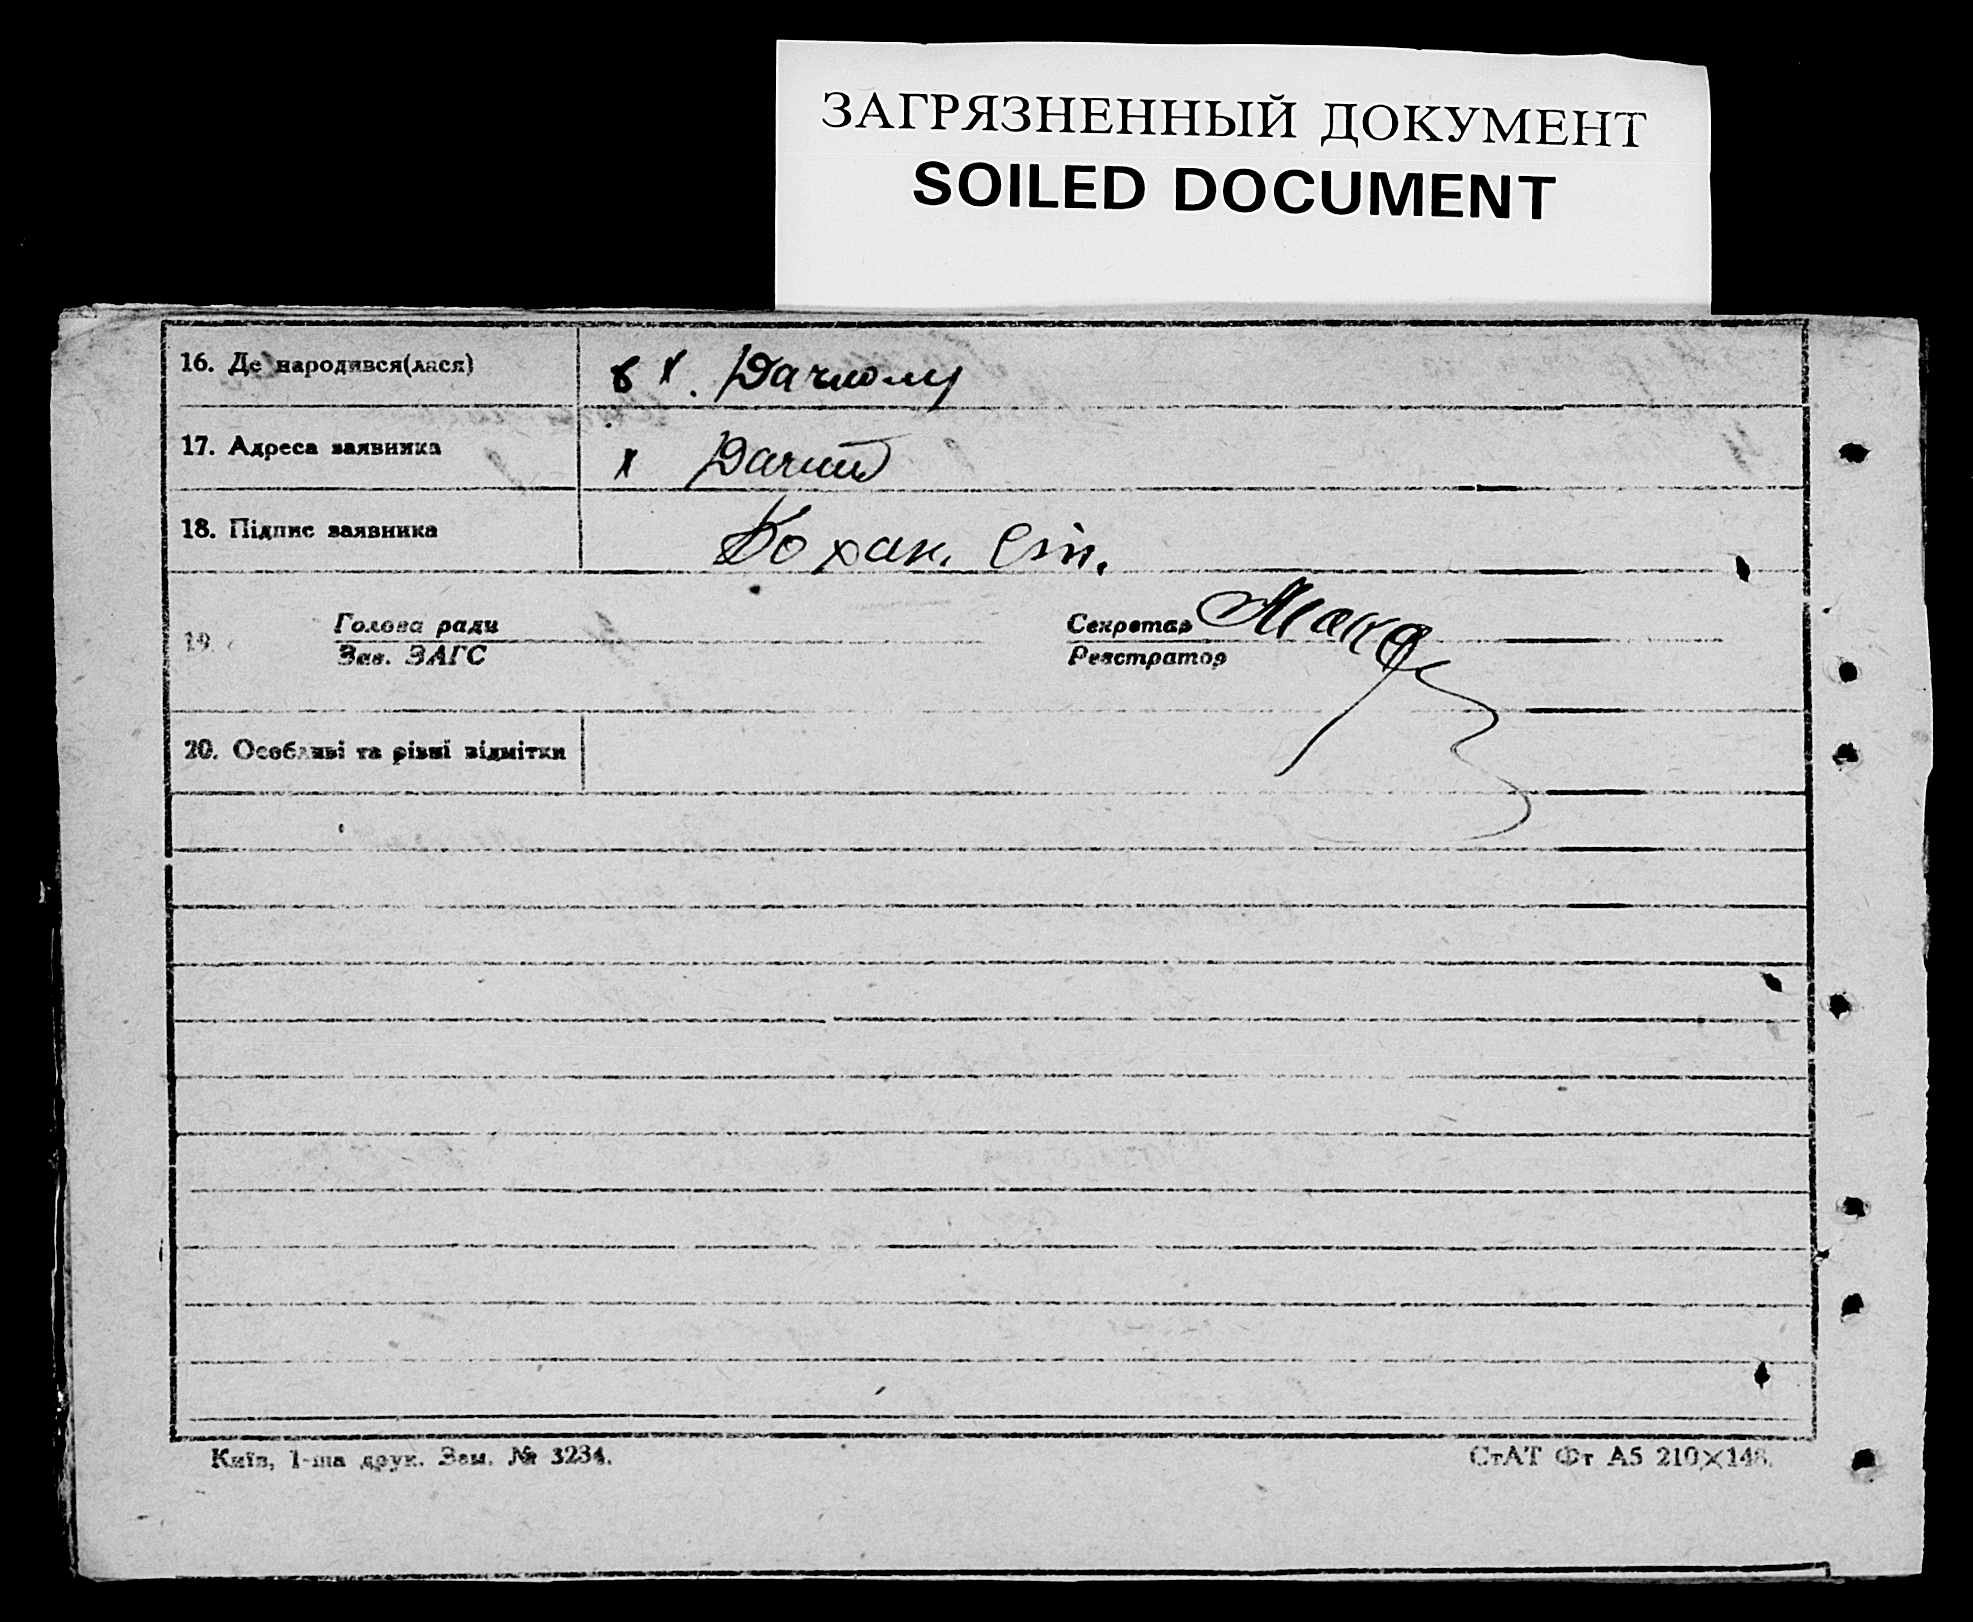 ЗАГРЯЗНЕННЫЙ ДОКУМЕНТ
SOILED DOCUMENT
16. Де народився(лася) в х. Дачному
17. Адреса заявника х Дачний
18. Підпис заявника Кохан. Ст.
19. Голова ради Секретар
Зав. ЗАГС Реєстратор
20. Особливі та різні відмітки
Київ, 1-ша друк. Зам. № 3234. СтАТ Фт А5 210×148.